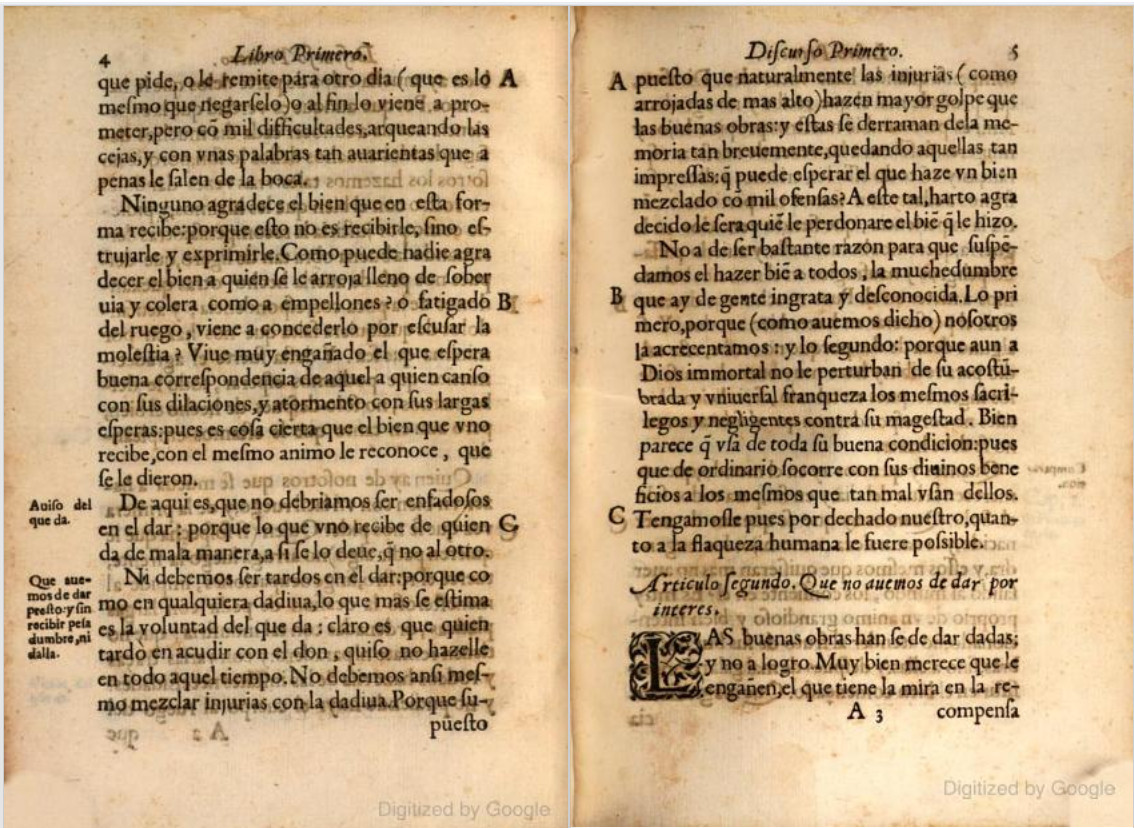 4 Libro Primero.
que pide, o le remite para otro dia ( que es lo A
meſmo que negarſelo )o al fin lo viene a pro-
meter,pero cõ mil difficultades,arqueando las
cejas,y con vnas palabras tan auarientas que a
penas le ſalen de la boca.
Ninguno agradece el bien que en eſta for-
ma recibe:porque eſto no es recibirle, ſino eſ-
trujarle y exprimirle.Como puede nadie agra
decer el bien a quien ſe le arroja lleno de ſober
uia y colera como a empellones ? o fatigado B
del ruego , viene a concederlo por eſcuſar la
moleſtia ? Viue muy engañado el que eſpera
buena correſpondencia de aquel a quien canſo
con ſus dilaciones,y atormento con ſus largas
eſperas:pues es coſa cierta que el bien que vno
recibe,con el meſmo animo le reconoce , que
ſe le dieron.
Auiſo del
que da.
De aqui es,que no debriamos ſer enfadoſos
en el dar : porque lo que vno recibe de quien C
da de mala manera,a ſi ſe lo deue,q̃ no al otro.
Que aue-
mos de dar
preſto:y ſin
recibir peſa
dumbre,ni
dalla.
Ni debemos ſer tardos en el dar:porque co
mo en qualquiera dadiua,lo que mas ſe eſtima
es la voluntad del que da : claro es que quien
tardò en acudir con el don , quiſo no hazelle
en todo aquel tiempo. No debemos anſi meſ-
mo mezclar injurias con la dadiua.Porque ſu-
pueſto
Diſcurſo Primero. 5
A pueſto que naturalmente las injurias ( como
arrojadas de mas alto)hazen mayor golpe que
las buenas obras:y eſtas ſe derraman dela me-
moria tan breuemente,quedando aquellas tan
impreſſas:q̃ puede eſperar el que haze vn bien
mezclado cõ mil ofenſas? A eſte tal,harto agra
decido le ſera quiẽ le perdonare el biẽ q̃ le hizo.
No a de ſer baſtante razón para que ſuſpẽ-
damos el hazer biẽ a todos , la muchedumbre
B que ay de gente ingrata y deſconocida. Lo pri
mero,porque (como auemos dicho) noſotros
la acrecentamos : y lo ſegundo: porque aun a
Dios immortal no le perturban de ſu acoſtũ-
brada y vniuerſal franqueza los meſmos ſacri-
legos y negligentes contra ſu mageſtad . Bien
parece q̃ vſa de toda ſu buena condicion:pues
que de ordinario ſocorre con ſus diuinos bene
ficios a los meſmos que tan mal vſan dellos.
C Tengamoſle pues por dechado nueſtro,quan-
to a la flaqueza humana le fuere poſsible.
Articulo ſegundo. Que no auemos de dar por
interes.
LAS buenas obras han ſe de dar dadas;
y no a logro. Muy bien merece que le
engañen,el que tiene la mira en la re-
A 3 compenſa
Digitized by Google
Digitized by Google